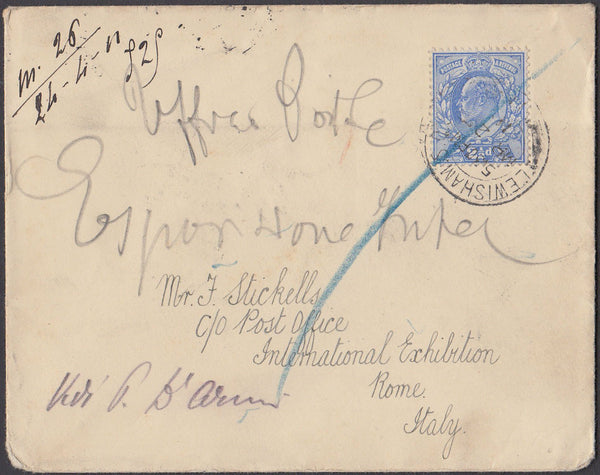 m. 26
24-4-11
Uffici Poste
Esposizione Inter
POSTAGE & REVENUE
LEWISHAM
Mr. F. Stickells
C/o Post Office
International Exhibition
Rome.
Italy.